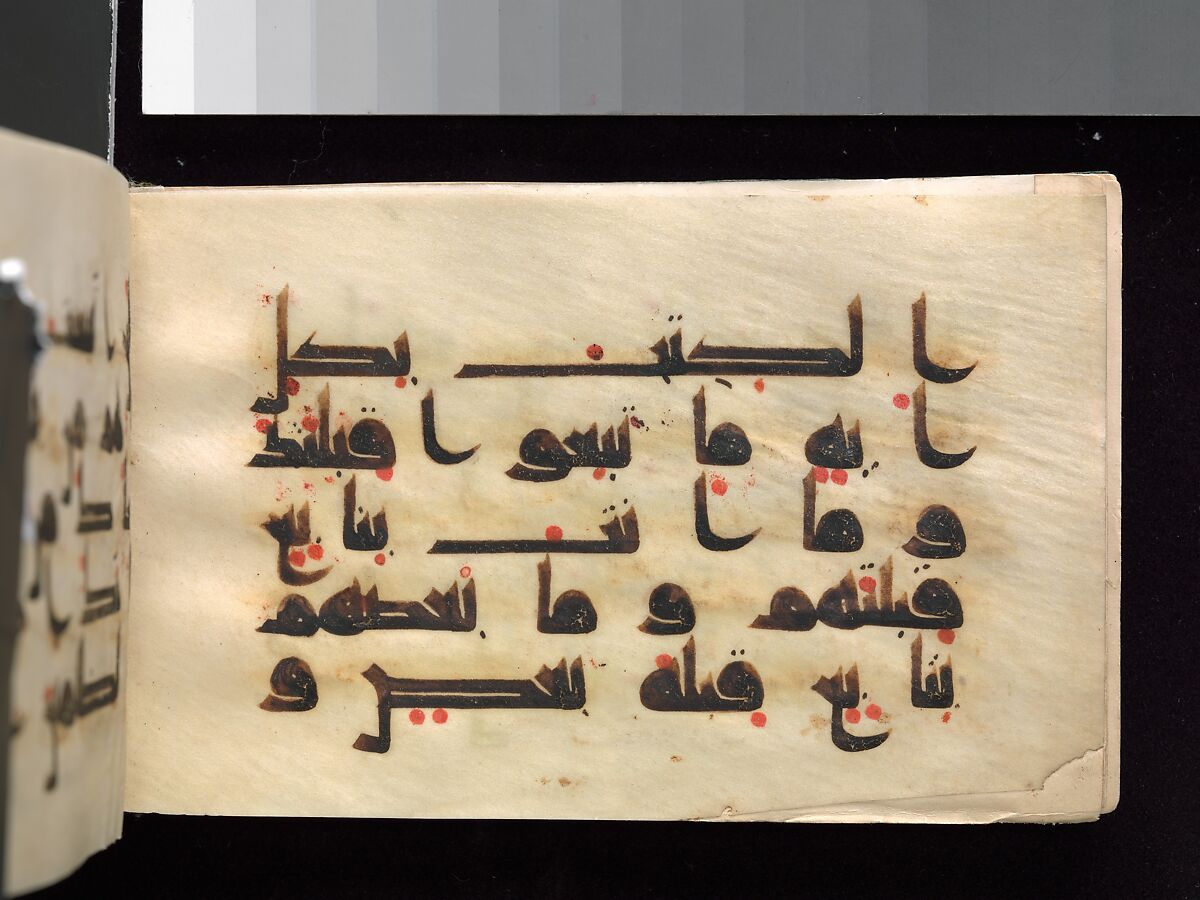 ا لكتب بكل
ا ية ما تبعوا قبلتك
وما ا نت بتا بع
قبلتهم و ما بعضهم
بتا بع قبلة بعض و